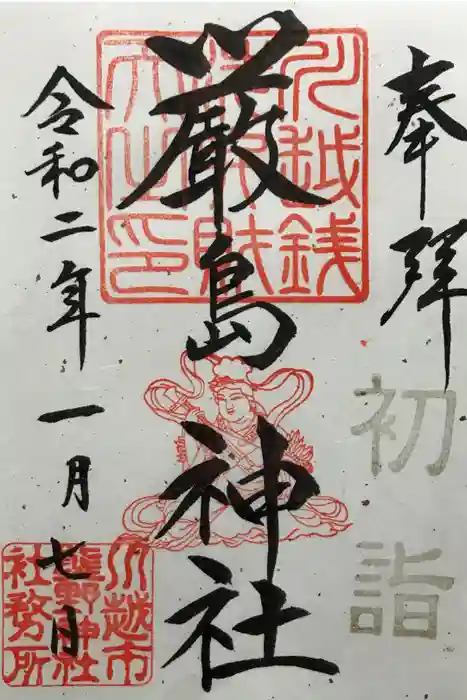 奉拝
初詣
厳島神社
川越銭
洗弁財
天之印
令和二年一月七日
川越市
熊野神社
社務所